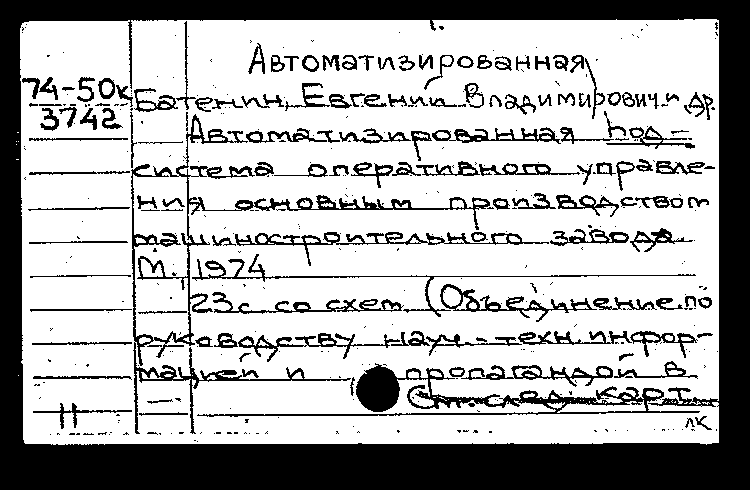 1.
Автоматизированная
74-50к
3742
Батенин, Евгений Владимирович и др.
Автоматизированная под-
система оперативного управле-
ния основным производством
машиностроительного завода.
М., 1974
23с со схем. (Объединение по
руководству науч.-техн. инфор-
мацией и пропагандой в
См. след. карт
11
лк